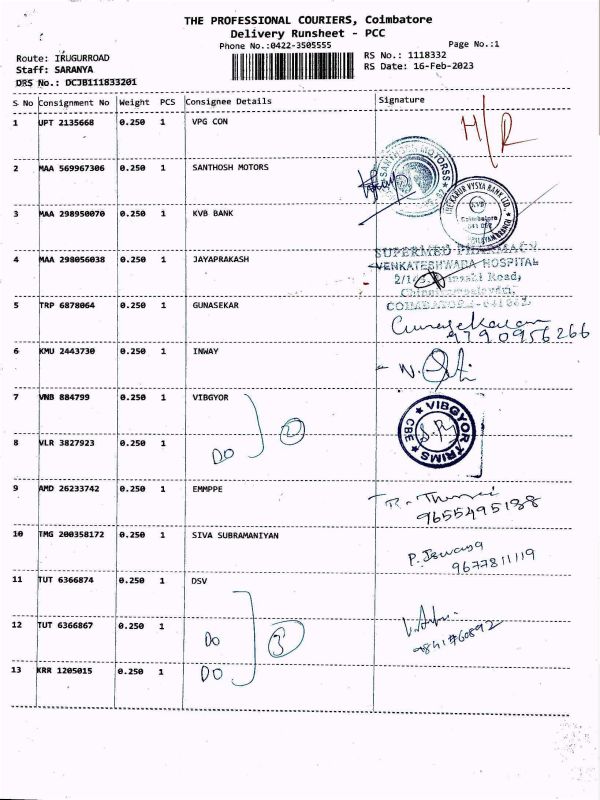 THE PROFESSIONAL COURIERS, Coimbatore
Delivery Runsheet - PCC
Phone No.:0422-3505555
Page No.:1
Route: IRUGURROAD
RS No.: 1118332
Staff: SARANYA
RS Date: 16-Feb-2023
DRS No.: DCJB111833201
S No Consignment No Weight PCS Consignee Details Signature
1 UPT 2135668 0.250 1 VPG CON H/R
2 MAA 569967306 0.250 1 SANTHOSH MOTORS
SANTHOSH MOTORSS
3 MAA 298950070 0.250 1 KVB BANK
KARUR VYSYA BANK LTD.
KVB
Coimbatore
4 MAA 298056038 0.250 1 JAYAPRAKASH
SUPERMED PHARMACY
VENKATESHWARA HOSPITAL
Road,
COIMBATORE
5 TRP 6878064 0.250 1 GUNASEKAR
Gunasekaran
9790956266
6 KMU 2443730 0.250 1 INWAY
7 VNB 884799 0.250 1 VIBGYOR
VIBGYOR TRIMS
CBE
8 VLR 3827923 0.250 1 DO 2
9 AMD 26233742 0.250 1 EMMPPE
9655495138
10 TMG 200358172 0.250 1 SIVA SUBRAMANIYAN
9677811119
11 TUT 6366874 0.250 1 DSV
12 TUT 6366867 0.250 1 DO 3
13 KRR 1205015 0.250 1 DO